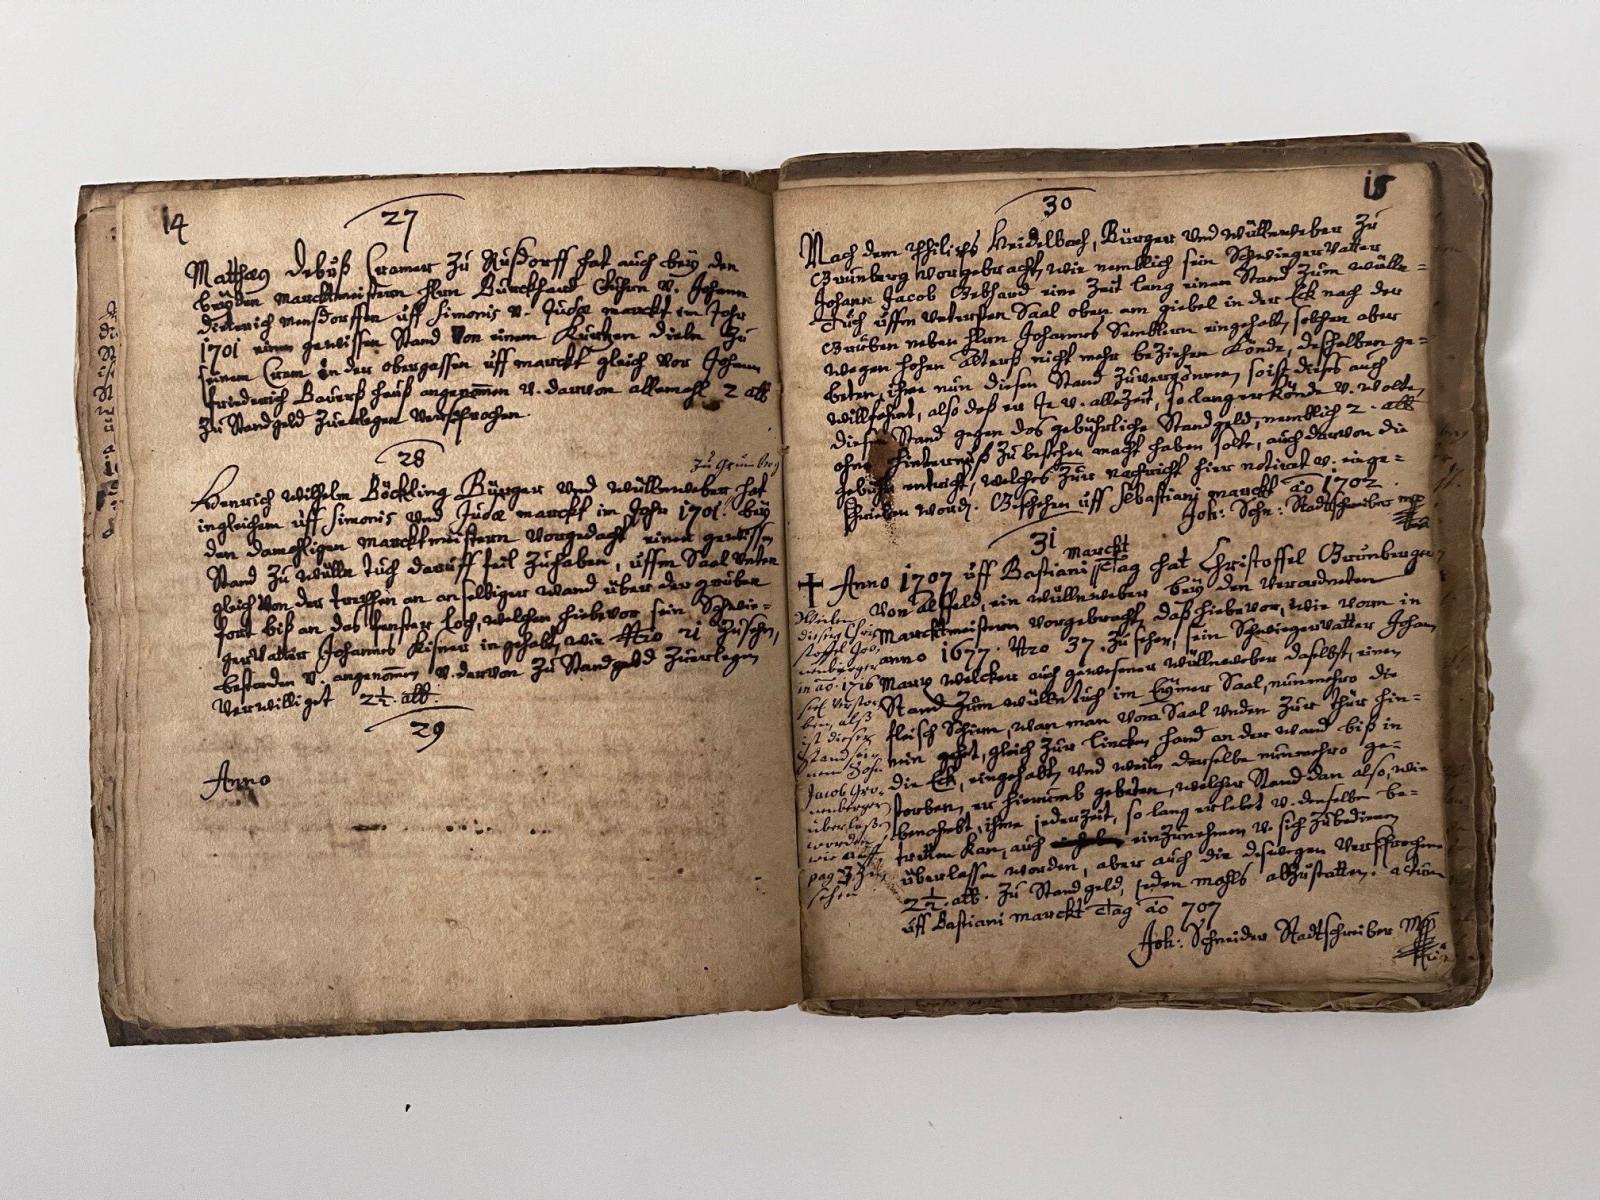 14
27
Matthæs Debuß Cramer zu Rußdorff hat auch bey den
beyden Marcktmeistern Hrn Burckhard v. Johann
Dieterich Mensdorffen uff Simonis v. Judæ marckt im Jahr
1701 einen gewissen Stand von einem Kurtzen Dielen zu
seinem Cram in der obergassen uff marckt gleich vor Johann
Friederich Bauerß Hauß angenom̅en v. darvon allemahl 2 alb
zu Standgeld zuerlegen versprochen.
28
zu Grünberg
Henrich Wilhelm Böckling Bürger und Wüllenweber hat
ingleichem uff Simonis und Judæ marckt im Jahr 1701. bey
den damahligen Marcktmeistern vorgedacht einen gewissen
Stand zu Wüllen tuch daruff feil zuhaben, uffm Saal unten
gleich von der treppen an an selbiger wand über der gruben
fort biß an das fenster loch, welchen hiebevor sein Schwie-
gervatter Johannes Kisner ingehabt, wie Nro 21 zusehn,
bestanden v. angenom̅en v. dervon zu Standgeld zuerlegen
verwilliget 2½ alb.
29
Anno
15
30
Nach dem Philips Heidelbach, Bürger und Wüllenweber zu
Grünberg vorgebracht, wie nemblich sein Schwiegervatter
Johann Jacob Gebhard eine Zeit lang einen Stand zum Wülle-
Tuch uffm untersten Saal oben am giebel in der Eck nach der
Gruben neben Hrn Johannes Semblern eingehabt, solchen aber
wegen hohen Alterß nicht mehr beziehen könde, deßhalben ge-
beten, ihme nun diesen Stand zuvergönnen, so ist dieses auch
willfahrt, also daß er Je v. allezeit, so lang er könde v. wolte,
diesen Stand gegen das gebührliche Standgeld, nemblich 2. alb
ohne hinternuß zu bestehen macht haben solte, auch darvon die
gebühr entricht, welches zur nachricht hier notirt v. einge-
schrieben word. Geschehen uff Sebastiani marckt ao 1702.
Joh: Schn: Stadtschreiber mpp
31
Marckt
Anno 1707 uff Bastiani Tag hat Christoffel Grünberger
von Alsfeld, ein Wüllenweber bey den verordneten
Marcktmeistern vorgebracht, daß hiebevor, wie vorn in
anno 1677. Nro 37. zu sehen, sein Schwiegervatter Johan
Marx Welcker auch gewesener Wüllenweber daselbst, einen
Stand zum Wüllentuch im Saal, nunmehro die
fleisch Schirn, wan man vom Saal unden zur Thür hin-
nein geht, gleich zur lincken hand an der wand biß in
die Eck, eingehabt, und weiln derselbe nunmehro ge-
storben, er hierumb gebeten, welcher Stand dan also, wie
benahebt, ihme jederzeit, so lang er lebet v. denselben be-
tretten kan, auch einzunehmen v. sich zubedienen
überlassen worden, aber auch die deswegen versprochene
2½ alb. zu Standgeld, jeden mahls abzustatten. actum
uff Bastiani marckt Tag ao 707
Joh: Schneider Stadtschreiber Mpp
Weilen
dieser Chri
stoffel
nenberger
in ao. 1716
verstor
ben, alß
ist dieser
Stand sei
nem Sohn
Jacob Gro-
nenberger
überlaßen
worden
wie auff
pag zu
sehen